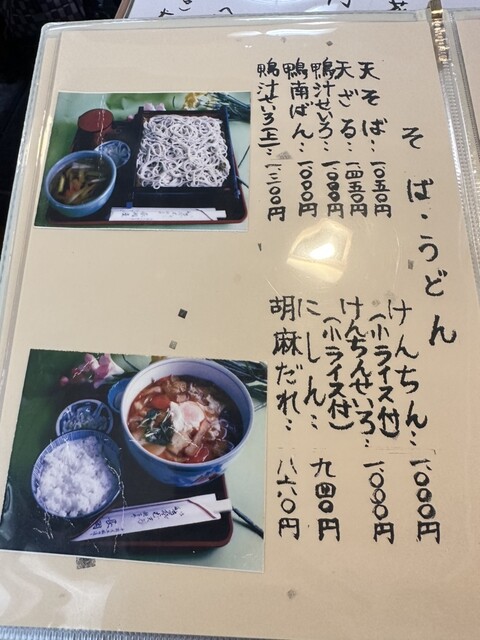 そば・うどん
天そば…一〇五〇円
天ざる…一四五〇円
鴨汁せいろ…一〇〇〇円
鴨南ばん…一〇〇〇円
鴨汁せいろ(上)…一三〇〇円
けんちん…一〇〇〇円
(小ライス付)
けんちんせいろ…一〇〇〇円
(小ライス付)
にしん…九四〇円
胡麻だれ…八六〇円